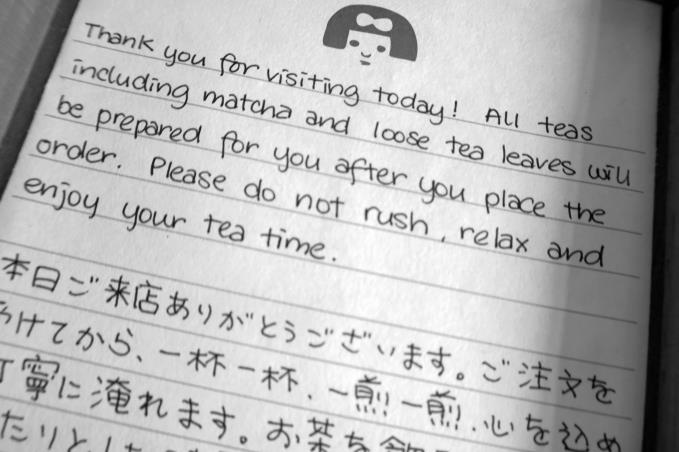 Thank you for visiting today! All teas
including matcha and loose tea leaves will
be prepared for you after you place the
order. Please do not rush, relax and
enjoy your tea time.
本日ご来店ありがとうございます。ご注文を
けてから、一杯一杯、一煎一煎、心を込め
寧に淹れます。お茶を
たりとした